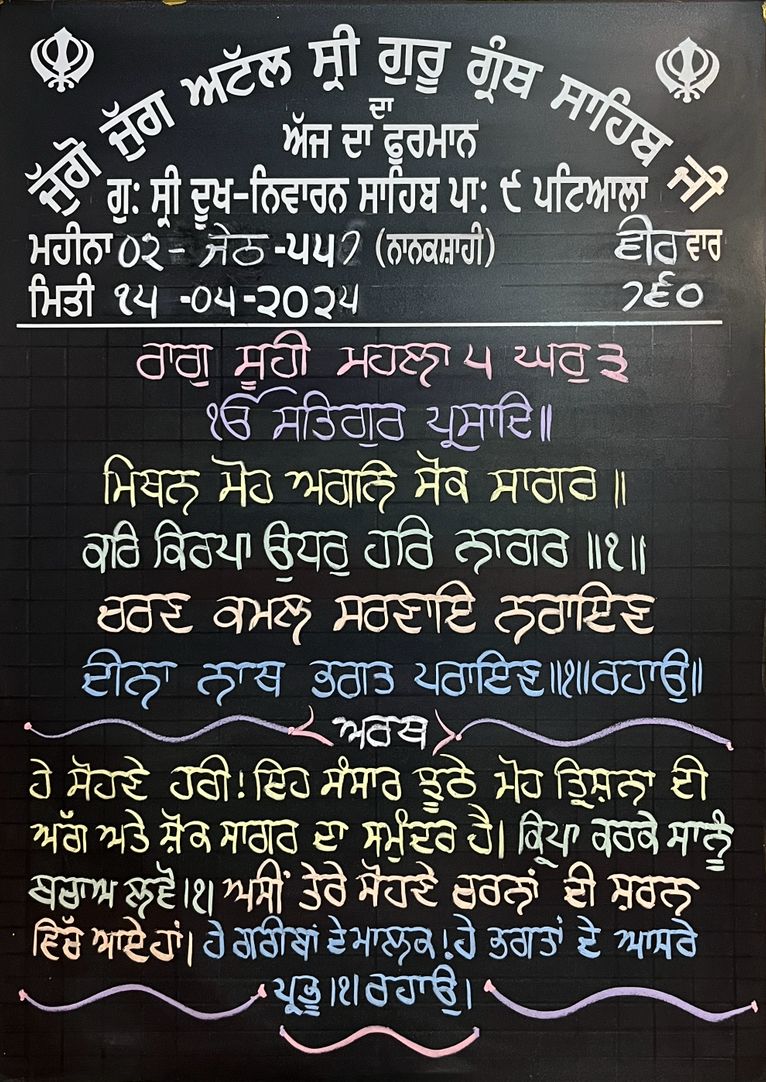 ਜੁੱਗੋ ਜੁੱਗ ਅਟੱਲ ਸ੍ਰੀ ਗੁਰੂ ਗ੍ਰੰਥ ਸਾਹਿਬ ਜੀ
ਦਾ
ਅੱਜ ਦਾ ਫੁਰਮਾਨ
ਗੁ: ਸ੍ਰੀ ਦੂਖ-ਨਿਵਾਰਨ ਸਾਹਿਬ ਪਾ: ੯ ਪਟਿਆਲਾ
ਮਹੀਨਾ ੦੨ - ਜੇਠ -੫੫੭ (ਨਾਨਕਸ਼ਾਹੀ) ਵੀਰ ਵਾਰ
ਮਿਤੀ ੧੫ -੦੫-੨੦੨੫ ੭੬੦
ਰਾਗੁ ਸੂਹੀ ਮਹਲਾ ੫ ਘਰੁ ੩
ੴ ਸਤਿਗੁਰ ਪ੍ਰਸਾਦਿ॥
ਮਿਥਨ ਮੋਹ ਅਗਨਿ ਸੋਕ ਸਾਗਰ ॥
ਕਰਿ ਕਿਰਪਾ ਉਧਰੁ ਹਰਿ ਨਾਗਰ ॥੧॥
ਚਰਣ ਕਮਲ ਸਰਣਾਇ ਨਰਾਇਣ
ਦੀਨਾ ਨਾਥ ਭਗਤ ਪਰਾਇਣ॥੧॥ਰਹਾਉ॥
ਅਰਥ
ਹੇ ਸੋਹਣੇ ਹਰੀ! ਇਹ ਸੰਸਾਰ ਝੂਠੇ ਮੋਹ ਤ੍ਰਿਸ਼ਨਾ ਦੀ
ਅੱਗ ਅਤੇ ਸ਼ੋਕ ਸਾਗਰ ਦਾ ਸਮੁੰਦਰ ਹੈ। ਕ੍ਰਿਪਾ ਕਰਕੇ ਸਾਨੂੰ
ਬਚਾਅ ਲਵੋ।੧। ਅਸੀਂ ਤੇਰੇ ਸੋਹਣੇ ਚਰਨਾਂ ਦੀ ਸ਼ਰਨ
ਵਿੱਚ ਆਏ ਹਾਂ। ਹੇ ਗਰੀਬਾਂ ਦੇ ਮਾਲਕ! ਹੇ ਭਗਤਾਂ ਦੇ ਆਸਰੇ
ਪ੍ਰਭੂ।੧।ਰਹਾਉ।